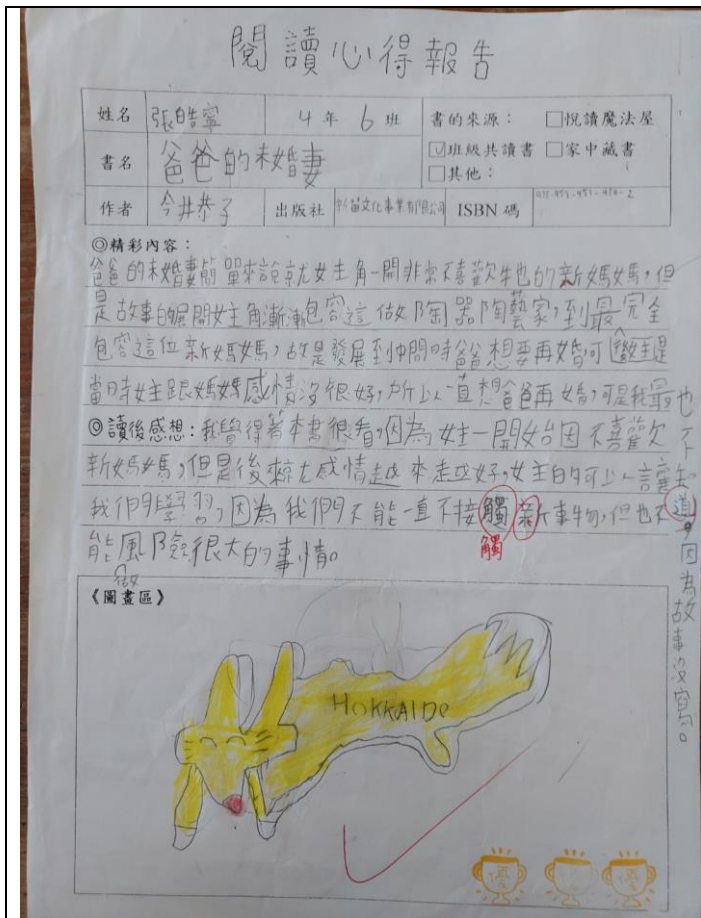 閱讀心得報告
姓名 張皓寧 4年6班 書的來源： □悅讀魔法屋
書名 爸爸的未婚妻 ☑班級共讀書 □家中藏書
□其他：
作者 今井恭子 出版社 文化事業有限公司 ISBN 碼
◎精彩內容：
爸爸的未婚妻簡單來說就女主角一開非常不喜歡牠的新媽媽，但
是故事的展開女主角漸漸包容這做陶器陶藝家，到最完全
包容這位新媽媽，故是發展到中間時爸爸想要再婚，可
當時女主跟媽媽感情沒很好，所以一直想爸爸再婚，可是我最也
不知道，因為故事沒寫。
◎讀後感想：我覺得著本書很看，因為女主一開始因不喜歡
新媽媽，但是後來感情越來越好，女主的可以讓
我們學習，因為我們不能一直不接觸新事物，但也不
觸
能做風險很大的事情。
《圖畫區》
HOKKAIDO
優 優 優